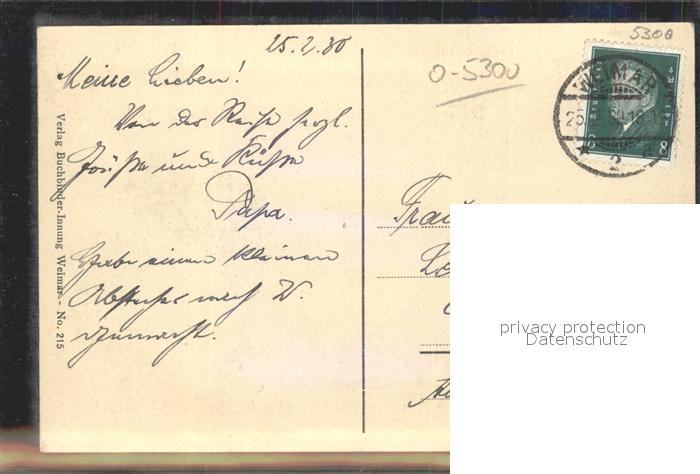 5300
25.2.30
0-5300
Meine Lieben!
Von der Reise herzl.
Grüße und Küsse
Papa.
Habe einen kleinen
Abstecher nach W.
gemacht.
Verlag Buchbinder-Innung Weimar - No. 215
WEIMAR
2
8 8
Frau
privacy protection
Datenschutz